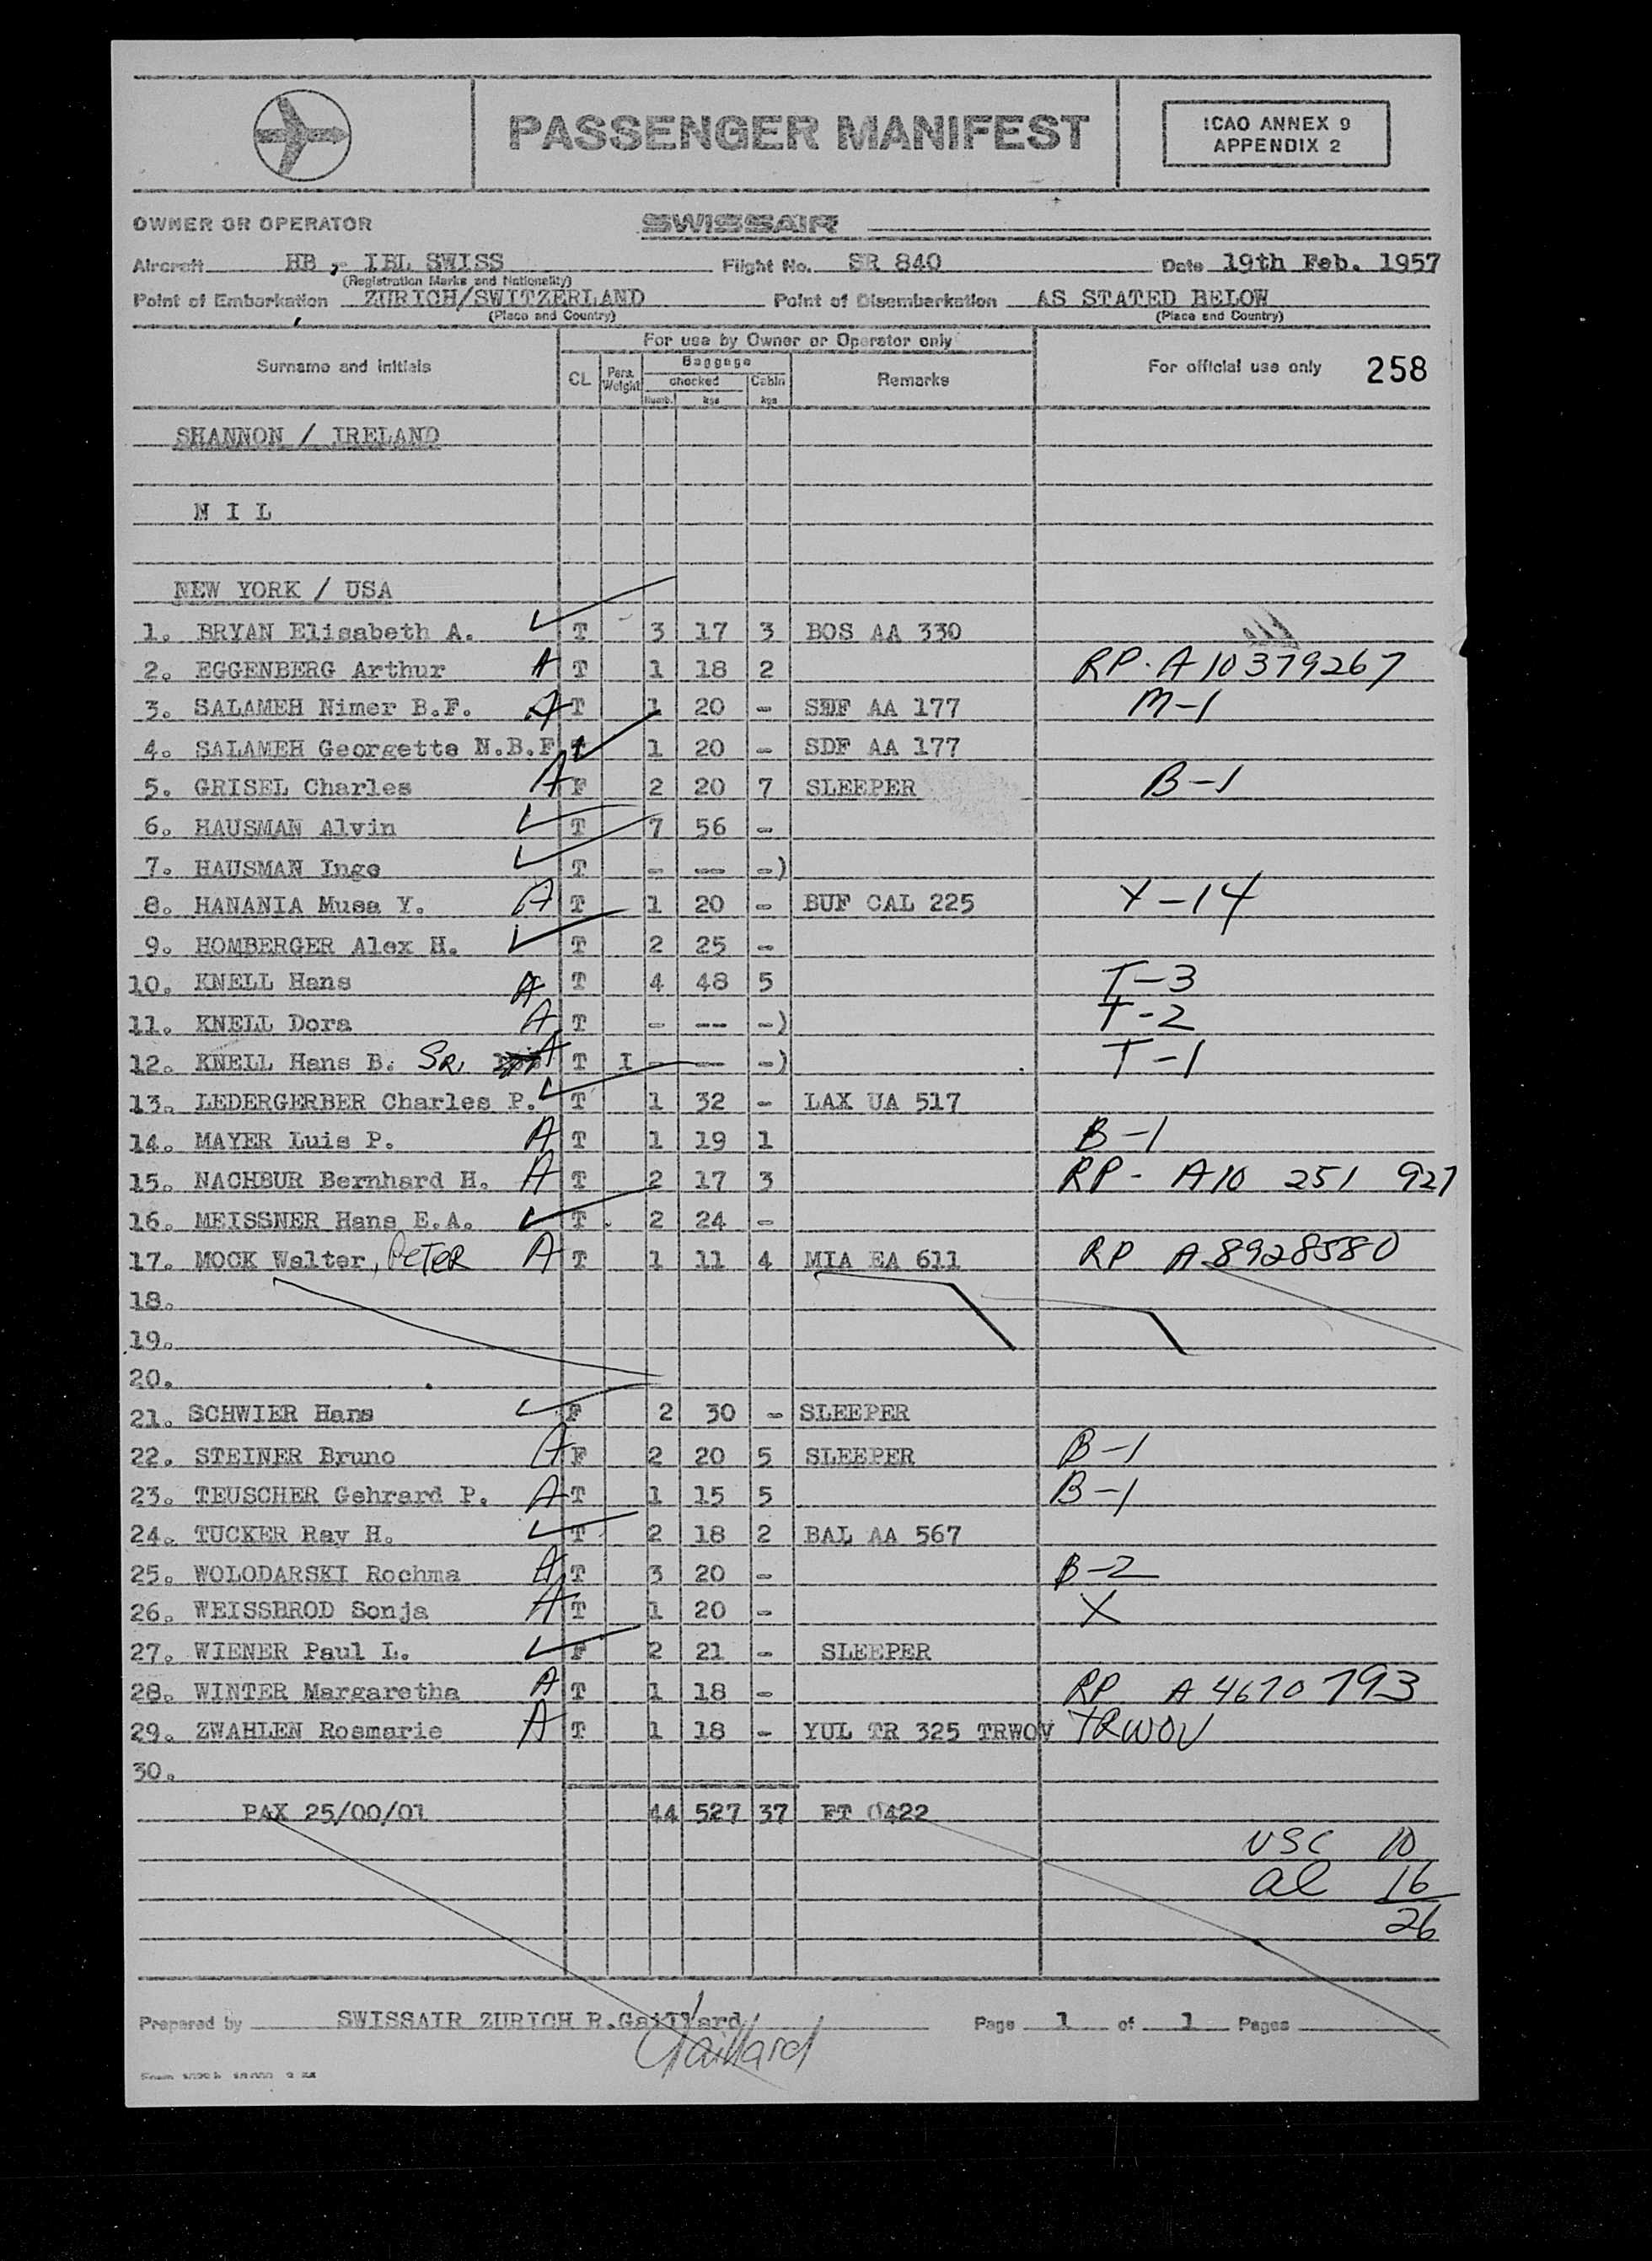 PASSENGER MANIFEST
ICAO ANNEX 9
APPENDIX 2
OWNER OR OPERATOR SWISSAIR
Aircraft HB - IBL SWISS Flight No. SR 840 Date 19th Feb. 1957
(Registration Marks and Nationality)
Point of Embarkation ZURICH/SWITZERLAND Point of Disembarkation AS STATED BELOW
(Place and Country) (Place and Country)
For use by Owner or Operator only
Surname and initials CL Pers. Weight Baggage checked Numb. kgs Cabin kgs Remarks For official use only 258
SHANNON / IRELAND
N I L
NEW YORK / USA
1. BRYAN Elisabeth A. T 3 17 3 BOS AA 330
2. EGGENBERG Arthur A T 1 18 2 RP. A10379267
3. SALAMEH Nimer B.F. A T 1 20 - SDF AA 177 M-1
4. SALAMEH Georgette N.B.F. 1 20 - SDF AA 177
5. GRISEL Charles A F 2 20 7 SLEEPER B-1
6. HAUSMAN Alvin T 7 56 -
7. HAUSMAN Inge T - -- -)
8. HANANIA Musa Y. A T 1 20 - BUF CAL 225 X-14
9. HOMBERGER Alex H. T 2 25 -
10. KNELL Hans A T 4 48 5 T-3
11. KNELL Dora A T - -- -) T-2
12. KNELL Hans B. SR, A T I - -- -) T-1
13. LEDERGERBER Charles P. T 1 32 - LAX UA 517
14. MAYER Luis P. A T 1 19 1 B-1
15. NACHBUR Bernhard H. A T 2 17 3 RP - A10 251 927
16. MEISSNER Hans E.A. T 2 24 -
17. MOCK Walter, PETER A T 1 11 4 MIA EA 611 RP A8928580
18.
19.
20.
21. SCHWIER Hans F 2 30 - SLEEPER
22. STEINER Bruno A F 2 20 5 SLEEPER B-1
23. TEUSCHER Gehrard P. A T 1 15 5 B-1
24. TUCKER Ray H. T 2 18 2 BAL AA 567
25. WOLODARSKI Rochma A T 3 20 - B-2
26. WEISSBROD Sonja A T 1 20 - X
27. WIENER Paul L. F 2 21 - SLEEPER
28. WINTER Margaretha A T 1 18 - RP A 4670793
29. ZWAHLEN Rosmarie A T 1 18 - YUL TR 325 TRWOV TRWOV
30.
PAX 25/00/01 44 527 37 FT 0422
USC 10
al 16
26
Prepared by SWISSAIR ZURICH R.Gaillard Page 1 of 1 Pages
Gaillard